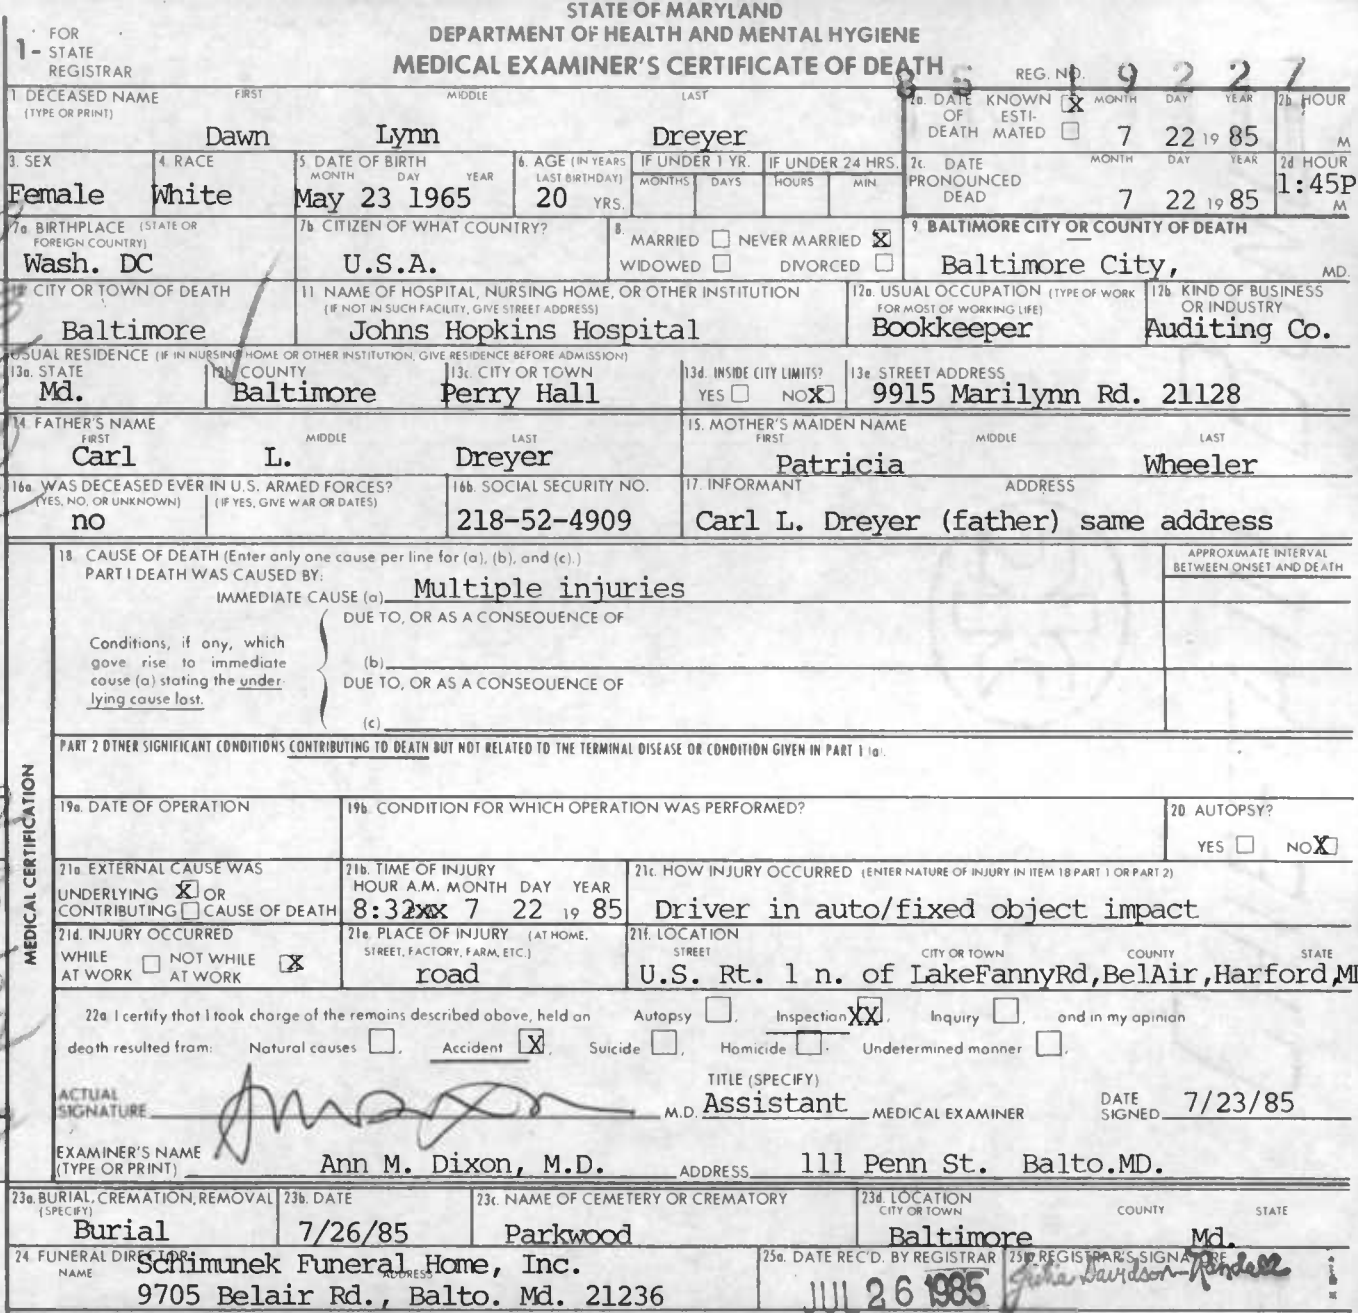 STATE OF MARYLAND
DEPARTMENT OF HEALTH AND MENTAL HYGIENE
MEDICAL EXAMINER'S CERTIFICATE OF DEATH
1- FOR STATE REGISTRAR
REG. NO. 85 19227
1 DECEASED NAME (TYPE OR PRINT) FIRST MIDDLE LAST
Dawn Lynn Dreyer
2a. DATE OF DEATH KNOWN X ESTIMATED MONTH DAY YEAR 2b HOUR
7 22 19 85 M
3. SEX 4. RACE 5. DATE OF BIRTH MONTH DAY YEAR 6. AGE (IN YEARS LAST BIRTHDAY) IF UNDER 1 YR. MONTHS DAYS IF UNDER 24 HRS. HOURS MIN 2c. DATE PRONOUNCED DEAD MONTH DAY YEAR 2d HOUR
Female White May 23 1965 20 YRS. 7 22 19 85 1:45P M
7a BIRTHPLACE (STATE OR FOREIGN COUNTRY) 7b CITIZEN OF WHAT COUNTRY? 8. MARRIED NEVER MARRIED X WIDOWED DIVORCED 9. BALTIMORE CITY OR COUNTY OF DEATH
Wash. DC U.S.A. Baltimore City, MD.
10 CITY OR TOWN OF DEATH 11 NAME OF HOSPITAL, NURSING HOME, OR OTHER INSTITUTION (IF NOT IN SUCH FACILITY, GIVE STREET ADDRESS) 12a. USUAL OCCUPATION (TYPE OF WORK FOR MOST OF WORKING LIFE) 12b KIND OF BUSINESS OR INDUSTRY
Baltimore Johns Hopkins Hospital Bookkeeper Auditing Co.
USUAL RESIDENCE (IF IN NURSING HOME OR OTHER INSTITUTION, GIVE RESIDENCE BEFORE ADMISSION)
13a. STATE 13b. COUNTY 13c. CITY OR TOWN 13d. INSIDE CITY LIMITS? 13e STREET ADDRESS
Md. Baltimore Perry Hall YES NO X 9915 Marilynn Rd. 21128
14. FATHER'S NAME FIRST MIDDLE LAST 15. MOTHER'S MAIDEN NAME FIRST MIDDLE LAST
Carl L. Dreyer Patricia Wheeler
16a WAS DECEASED EVER IN U.S. ARMED FORCES? (YES, NO, OR UNKNOWN) (IF YES, GIVE WAR OR DATES) 16b. SOCIAL SECURITY NO. 17. INFORMANT ADDRESS
no 218-52-4909 Carl L. Dreyer (father) same address
MEDICAL CERTIFICATION
18 CAUSE OF DEATH (Enter only one cause per line for (a), (b), and (c).) APPROXIMATE INTERVAL BETWEEN ONSET AND DEATH
PART I DEATH WAS CAUSED BY:
IMMEDIATE CAUSE (a) Multiple injuries
DUE TO, OR AS A CONSEQUENCE OF
Conditions, if any, which gave rise to immediate cause (a) stating the underlying cause last.
(b)
DUE TO, OR AS A CONSEQUENCE OF
(c)
PART 2 OTHER SIGNIFICANT CONDITIONS CONTRIBUTING TO DEATH BUT NOT RELATED TO THE TERMINAL DISEASE OR CONDITION GIVEN IN PART 1 (a).
19a. DATE OF OPERATION 19b. CONDITION FOR WHICH OPERATION WAS PERFORMED? 20 AUTOPSY?
YES NO X
21a EXTERNAL CAUSE WAS UNDERLYING X OR CONTRIBUTING CAUSE OF DEATH
21b. TIME OF INJURY HOUR A.M. MONTH DAY YEAR
8:32xx 7 22 19 85
21c. HOW INJURY OCCURRED (ENTER NATURE OF INJURY IN ITEM 18 PART 1 OR PART 2)
Driver in auto/fixed object impact
21d. INJURY OCCURRED WHILE AT WORK NOT WHILE AT WORK X
21e. PLACE OF INJURY (AT HOME, STREET, FACTORY, FARM, ETC.)
road
21f. LOCATION STREET CITY OR TOWN COUNTY STATE
U.S. Rt. 1 n. of LakeFannyRd,BelAir,Harford,MD
22a I certify that I took charge of the remains described above, held an Autopsy , Inspection XX , Inquiry , and in my opinion
death resulted from: Natural causes , Accident X , Suicide , Homicide , Undetermined manner .
ACTUAL SIGNATURE M.D. TITLE (SPECIFY) Assistant MEDICAL EXAMINER DATE SIGNED 7/23/85
EXAMINER'S NAME (TYPE OR PRINT) Ann M. Dixon, M.D. ADDRESS 111 Penn St. Balto.MD.
23a. BURIAL, CREMATION, REMOVAL (SPECIFY) 23b. DATE 23c. NAME OF CEMETERY OR CREMATORY 23d. LOCATION CITY OR TOWN COUNTY STATE
Burial 7/26/85 Parkwood Baltimore Md.
24 FUNERAL DIRECTOR NAME Schimunek Funeral Home, Inc.
ADDRESS 9705 Belair Rd., Balto. Md. 21236
25a. DATE REC'D. BY REGISTRAR JUL 26 1985
25b REGISTRAR'S SIGNATURE Davidson-Randall